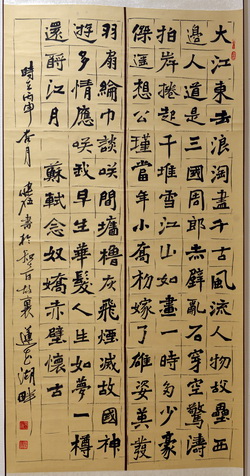 大江東去浪淘盡千古風流人物故壘西
邊人道是三國周郎赤壁亂石穿空驚濤
拍岸捲起千堆雪江山如畫一時多少豪
傑遙想公瑾當年小喬初嫁了雄姿英發
羽扇綸巾談笑間檣櫓灰飛煙滅故國神
遊多情應笑我早生華髮人生如夢一樽
還酹江月 蘇軾念奴嬌赤壁懷古
時在丙申杏月 書於 故裏 湖畔